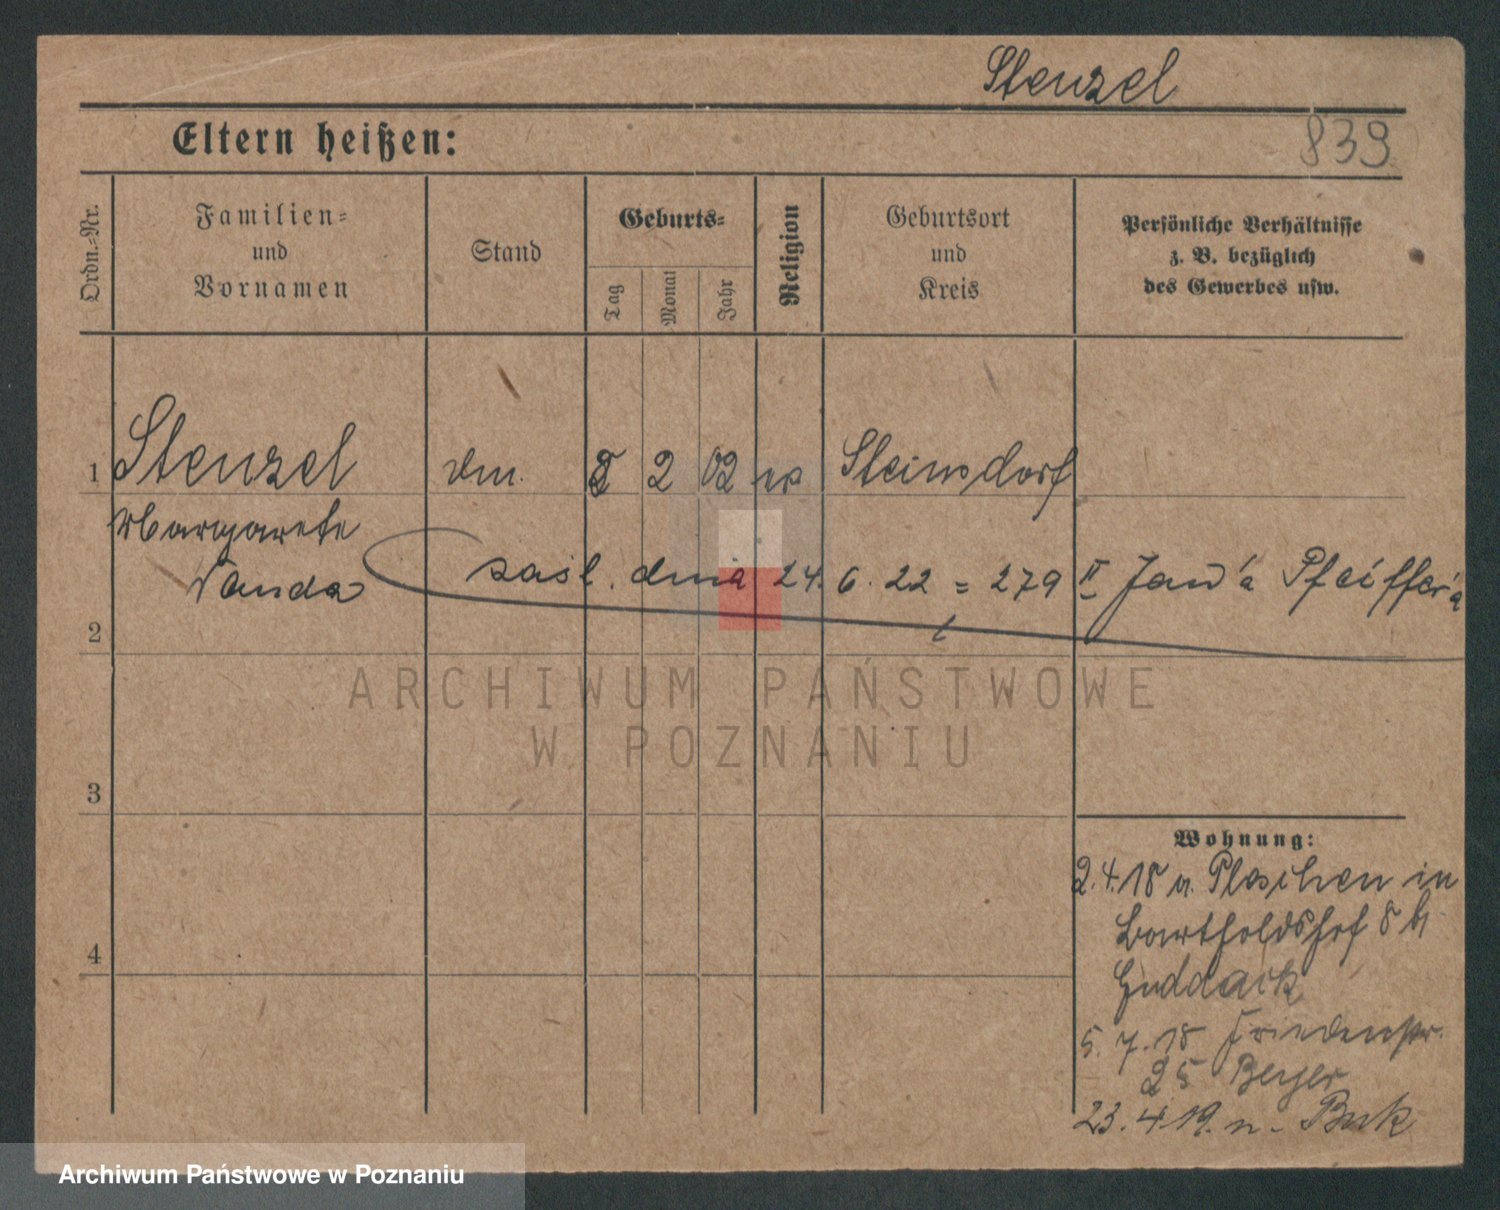 Stenzel
Eltern heißen:
839
Ordn.=Nr.
Familien=
und
Vornamen
Stand
Geburts=
Tag
Monat
Jahr
Religion
Geburtsort
und
Kreis
Persönliche Verhältnisse
z. B. bezüglich
des Gewerbes usw.
1 Stenzel 8 2 02 Steinsdorf
Margarete
Wanda
zaśl. dnia 24. 6. 22 = 279 II Jan'a Pfeiffer'a
2
ARCHIWUM PAŃSTWOWE
W POZNANIU
3
Wohnung:
2.4.18 v. Pleschen in
Bartholdshof 8 b/
4
Guddack
5.7.18 Friedenstr.
25 Beyer
23.4.19. n. Buk
Archiwum Państwowe w Poznaniu